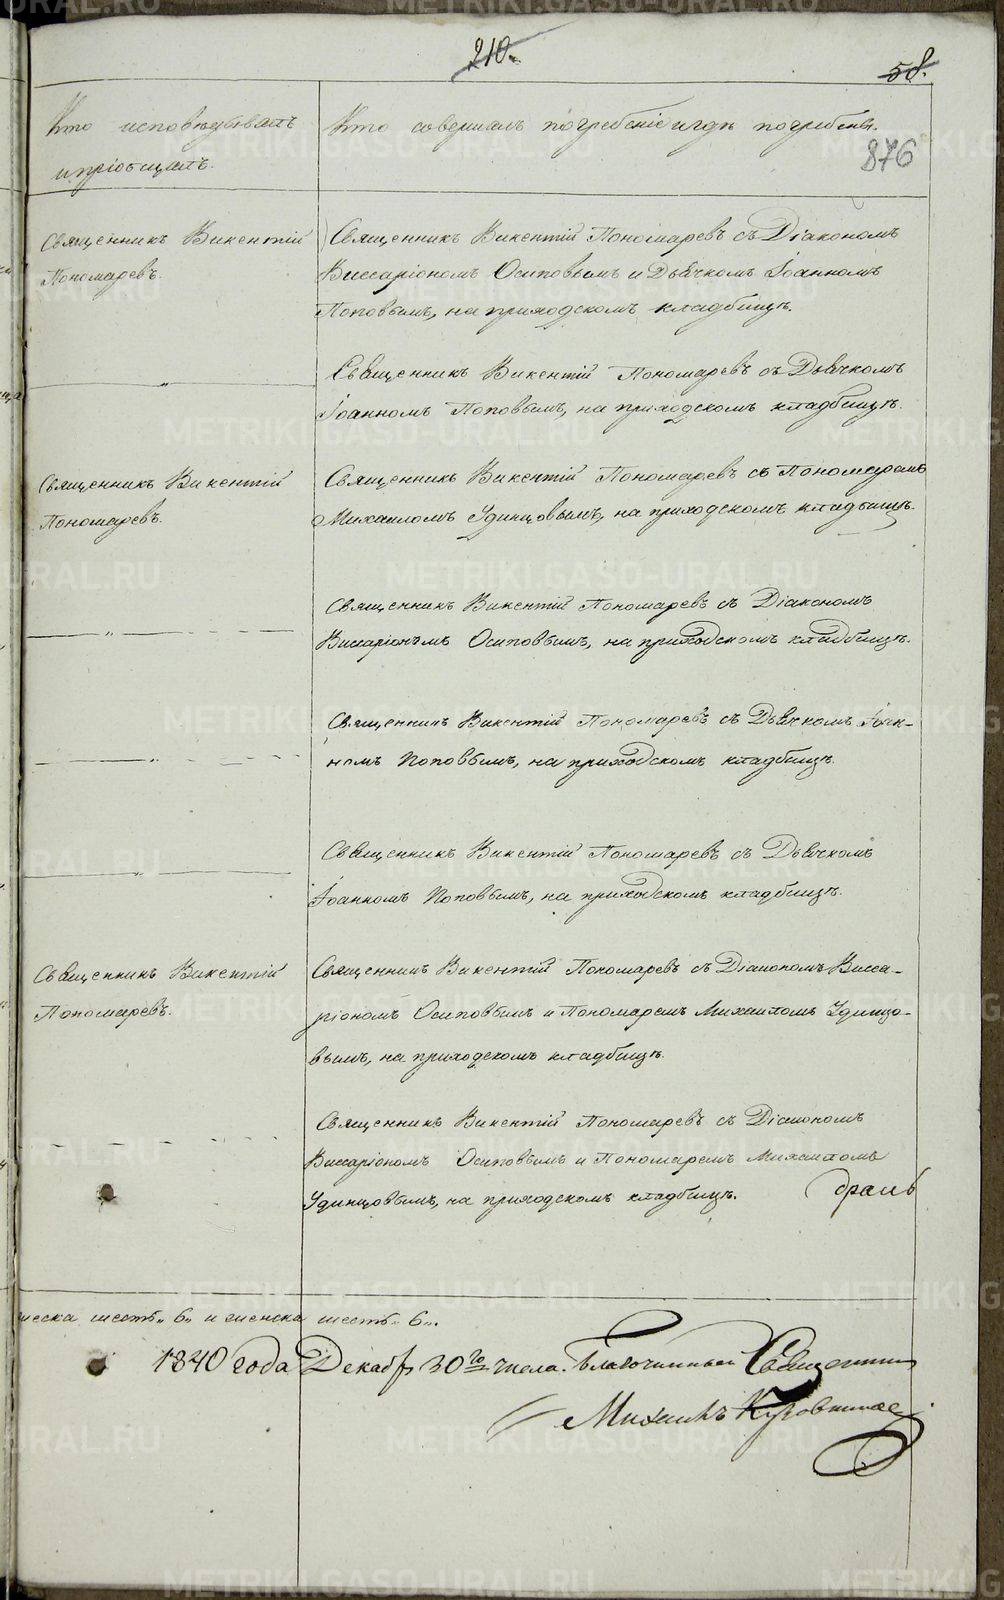 210.
58.
876
Кто исповѣдывалъ
и пріобщалъ.
Кто совершалъ погребеніе и гдѣ погребены.
Священникъ Викентій
Пономаревъ.
Священникъ Викентій Пономаревъ съ Діакономъ
Виссаріономъ Осиповымъ и Дьячкомъ Іоанномъ
Поповымъ, на приходскомъ кладбищѣ.
Священникъ Викентій Пономаревъ съ Дьячкомъ
Іоанномъ Поповымъ, на приходскомъ кладбищѣ.
Священникъ Викентій
Пономаревъ.
Священникъ Викентій Пономаревъ съ Пономаремъ
Михаиломъ Удинцовымъ, на приходскомъ кладбищѣ.
Священникъ Викентій Пономаревъ съ Діакономъ
Виссаріономъ Осиповымъ, на приходскомъ кладбищѣ.
Священникъ Викентій Пономаревъ съ Дьячкомъ Іоан-
номъ Поповымъ, на приходскомъ кладбищѣ.
Священникъ Викентій Пономаревъ съ Дьячкомъ
Іоанномъ Поповымъ, на приходскомъ кладбищѣ.
Священникъ Викентій
Пономаревъ.
Священникъ Викентій Пономаревъ съ Діакономъ Висса-
ріономъ Осиповымъ и Пономаремъ Михаиломъ Удинцо-
вымъ, на приходскомъ кладбищѣ.
Священникъ Викентій Пономаревъ съ Діакономъ
Виссаріономъ Осиповымъ и Пономаремъ Михаиломъ
Удинцовымъ, на приходскомъ кладбищѣ.
шесть „6„ и женска шесть „6„.
1840 года Декабр 30го числа. Благочинный Священникъ
Михаилъ